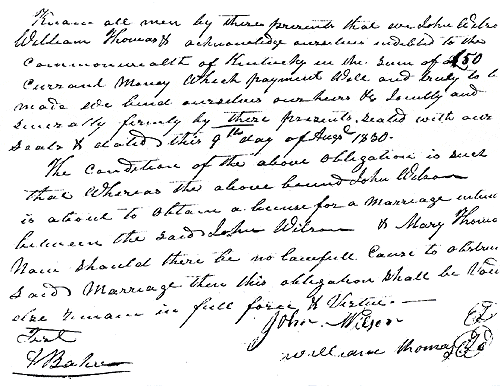 Know all men by these presents that we John Wilso
William Thomas & acknowledge ourselves indebted to the
Commonwealth of Kentucky in the sum of £50
Currand Money Which payment Well and truly to be
made we bind ourselves our heirs &c Jointly and
severally firmly by these presents sealed with our
seals & dated this 9th day of Augst 1830.
The Condition of the above obligation is such
that Whereas the above bound John Wilson
is about to obtain a license for a Marriage
between the said John Wilson & Mary Thoma
Now should there be no lawfull Cause to obstruc
said Marriage then this obligation shall be Void
else remain in full force & Virtue.
John Wilson
Test
William Thomas